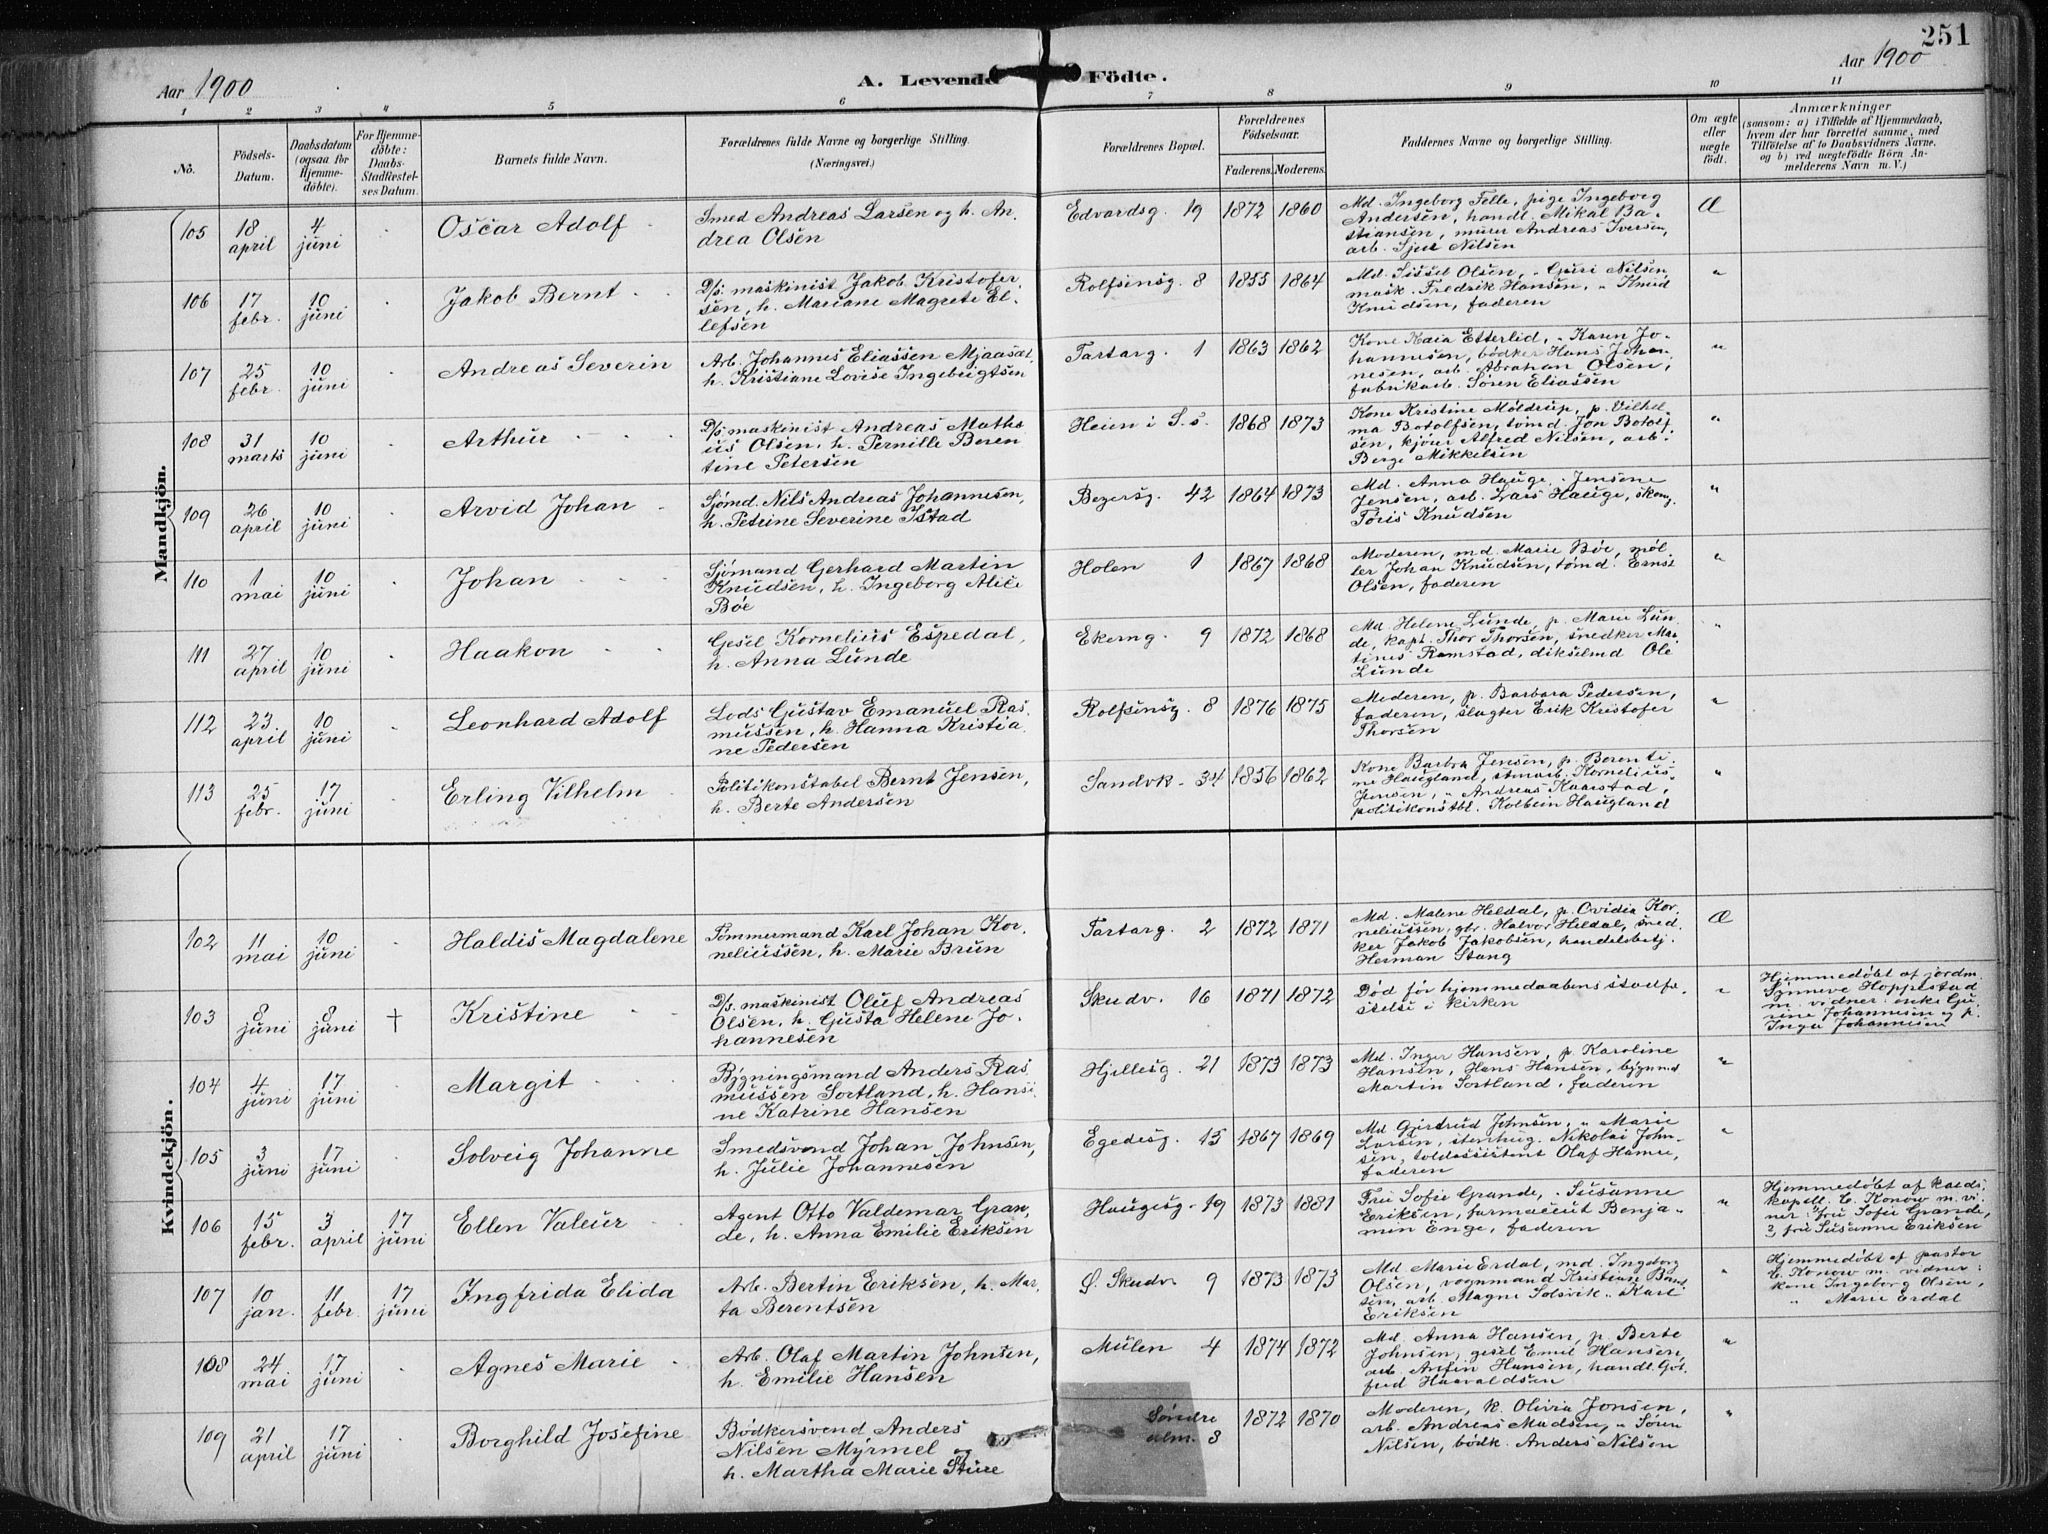 251
Aar 1900
A. Levende Födte.
Aar 1900
1 2 3 4 5 6 7 8 9 10 11
No.
Födsels-Datum.
Daabsdatum (ogsaa for Hjemmedöbte).
For Hjemmedöbte: Daabs-Stadfæstelses Datum.
Barnets fulde Navn.
Forældrenes fulde Navne og borgerlige Stilling.
(Næringsvei.)
Forældrenes Bopæl.
Forældrenes Födselsaar.
Faderens. Moderens.
Faddernes Navne og borgerlige Stilling.
Om ægte eller uægte födt.
Anmærkninger
(saasom: a) i Tilfælde af Hjemmedaab, hvem der har forrettet samme, med Tilföielse af to Daabsvidners Navne. og b) ved uægtefödte Börn Anmelderens Navn m. V.)
Mandkjön.
105 18 april 4 juni Oscar Adolf
Smed Andreas Larsen og h. An-
drea Olsen
Edvardsg. 19 1872 1860
Md. Ingeborg Felle, pige Ingeborg
Andersen, handl. Mikal Ba-
stiansen, murer Andreas Iversen,
arb. Sjur Nilsen
Æ
106 17 febr. 10 juni Jakob Bernt
D/s. maskinist Jakob Kristofer-
sen, h. Mariane Magrete El-
lefsen
Rolfsinsg. 8 1855 1864
Md. Sissel Olsen, " Guri Nilsen,
mask. Fredrik Hansen, " Knud
Knudsen, faderen
"
107 25 febr. 10 juni Andreas Severin
Arb. Johannes Eliassen Mjaasæt,
h. Kristiane Lovise Ingebrigtsen
Tartarg. 1 1863 1862
Kone Kaia Etterlid, " Karen Jo-
hannesen, bødker Hans Johan-
nesen, arb. Abraham Olsen,
fabrikarb. Søren Eliassen
"
108 31 marts 10 juni Arthur
D/s. maskinist Andreas Mathæ-
us Olsen, h. Pernille Beren
tine Petersen
Heien i S. s. 1868 1873
Kone Kristine Møldrup, p. Vilhel-
ma Botolfsen, tømd. Jon Botolf-
sen, kjører Alfred Nilsen, arb.
Berge Mikkelsen
"
109 26 april 10 juni Arvid Johan
Sjömd. Nils Andreas Johannesen,
h. Petrine Severine Istad
Bezersg. 42 1864 1873
Md. Anna Hauge, " Jensene
Jensen, arb. Lars Hauge, skom.
Tøris Knudsen
"
110 1 mai 10 juni Johan
Sjömand Gerhard Martin
Knudsen, h. Ingeborg Alice
Bøe
Holen 1 1867 1868
Moderen, md. Marie Bøe, møl-
ler Johan Knudsen, tømd. Ernst
Olsen, faderen
"
111 27 april 10 juni Haakon
Gesel Kornelius Espedal,
h. Anna Lunde
Ekerng. 9 1872 1868
Md. Helene Lunde, p. Marie Lun-
de, kapt. Thor Thorsen, snedker Mar-
tines Ramstad, dikselmd Ole
Lunde
"
112 23 april 10 juni Leonhard Adolf
Lods Gustav Emanuel Ras-
mussen, h. Hanna Kristia
ne Pedersen
Rolfsinsg. 8 1876 1875
Moderen, p. Barbara Pedersen,
faderen, slagter Erik Kristofer
Thorsen
"
113 25 febr. 17 juni Erling Vilhelm
Politikonstabel Bernt Jensen,
h. Berte Andersen
Sandvk. 34 1856 1862
Kone Barbra Jensen, p. Berenti-
ne Haugland, stenarb. Kornelius
Jensen, " Andreas Kaarstad,
politikonstbl. Kolbein Haugland
"
Kvindekjön.
102 11 mai 10 juni Haldis Magdalene
Tömmermand Karl Johan Kor-
neliussen, h. Marie Brun
Tartarg. 2 1872 1871
Md. Malene Heldal, p. Ovidia Kor-
neliussen, gbr. Halvor Heldal, sned-
ker Jakob Jakobsen, handelsbetj.
Herman Stang
Æ
103 8 juni 8 juni † Kristine
D/s. maskinist Oluf Andreas
Olsen, h. Gusta Helene Jo-
hannesen
Skudv. 16 1871 1872
Død før hjemmedaabens stadfæ-
stelse i kirken
"
Hjemmedøbt af jordm.
Synneve Hoppestad
m. vidner: enke Gu-
rine Johannesen og p.
Inga Johannesen
104 4 juni 17 juni Margit
Bygningsmand Anders Ras-
mussen Sortland, h. Hansi
ne Katrine Hansen
Hjellesg. 21 1873 1873
Md. Inger Hansen, p. Karoline
Hansen, Hans Hansen, bygnmd
Martin Sortland, faderen
"
105 3 juni 17 juni Solveig Johanne
Smedsvend Johan Johnsen,
h. Julie Johannesen
Egedesg. 15 1867 1869
Md Gjertrud Johnsen, " Marie
Larsen, stenhug. Nikolai John-
sen, toldassistent Olaf Hamre,
faderen
"
106 15 febr. 3 april 17 juni Ellen Valeur
Agent Otto Valdemar Gran-
de, h. Anna Emilie Eriksen
Haugesg. 19 1873 1881
Fru Sofie Grande, " Susanne
Eriksen, farmaceut Benja-
min Enge, faderen
"
Hjemmedøbt af
kapell. C. Konow m. vi-
ner: fru Sofie Grande,
fru Susanne Eriksen
107 10 jan. 11 febr. 17 juni Ingfrida Elida
Arb. Bertin Eriksen, h. Mar-
ta Berentsen
Ø. Skudv 9 1873 1873
Md Marie Erdal, md. Ingeborg
Olsen, vognmand Kristian Bent-
sen, arb. Magne Solsvik " Karl
Eriksen
"
Hjemmedøbt af pastor
C. Konow m. vidner:
kone Ingeborg Olsen,
" Marie Erdal
108 24 mai 17 juni Agnes Marie
Arb. Olaf Martin Johnsen,
h. Emilie Hansen
Mülen 4 1874 1872
Md. Anna Hansen, p. Berte
Johnsen, gesel Emil Hansen,
arb. Hansen, handl. Got-
fred Haavaldsen
"
109 21 april 17 juni Borghild Josefine
Bödkersvend Anders
Nilsen Myrmel og
h. Martha Marie Sture
Søndre alm. 3 1872 1870
Moderen, k. Olivia Jonsen,
arb. Andreas Madsen, " Søren
Nilsen, bødk. Anders Nilsen
"